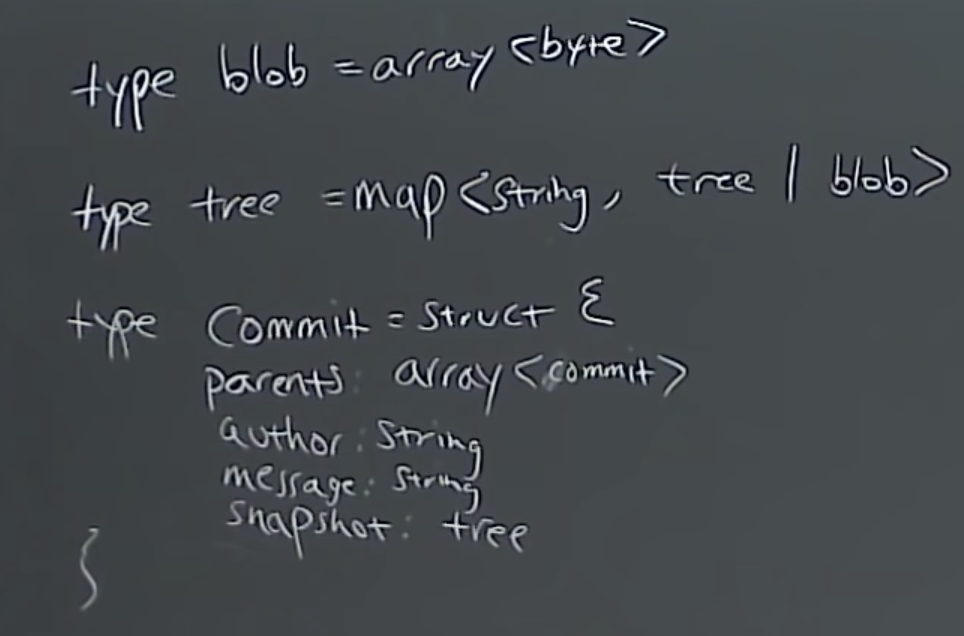 type blob = array <byte>
type tree = map <string, tree | blob>
type commit = struct {
parents: array <commit>
author: string
message: string
snapshot: tree
}